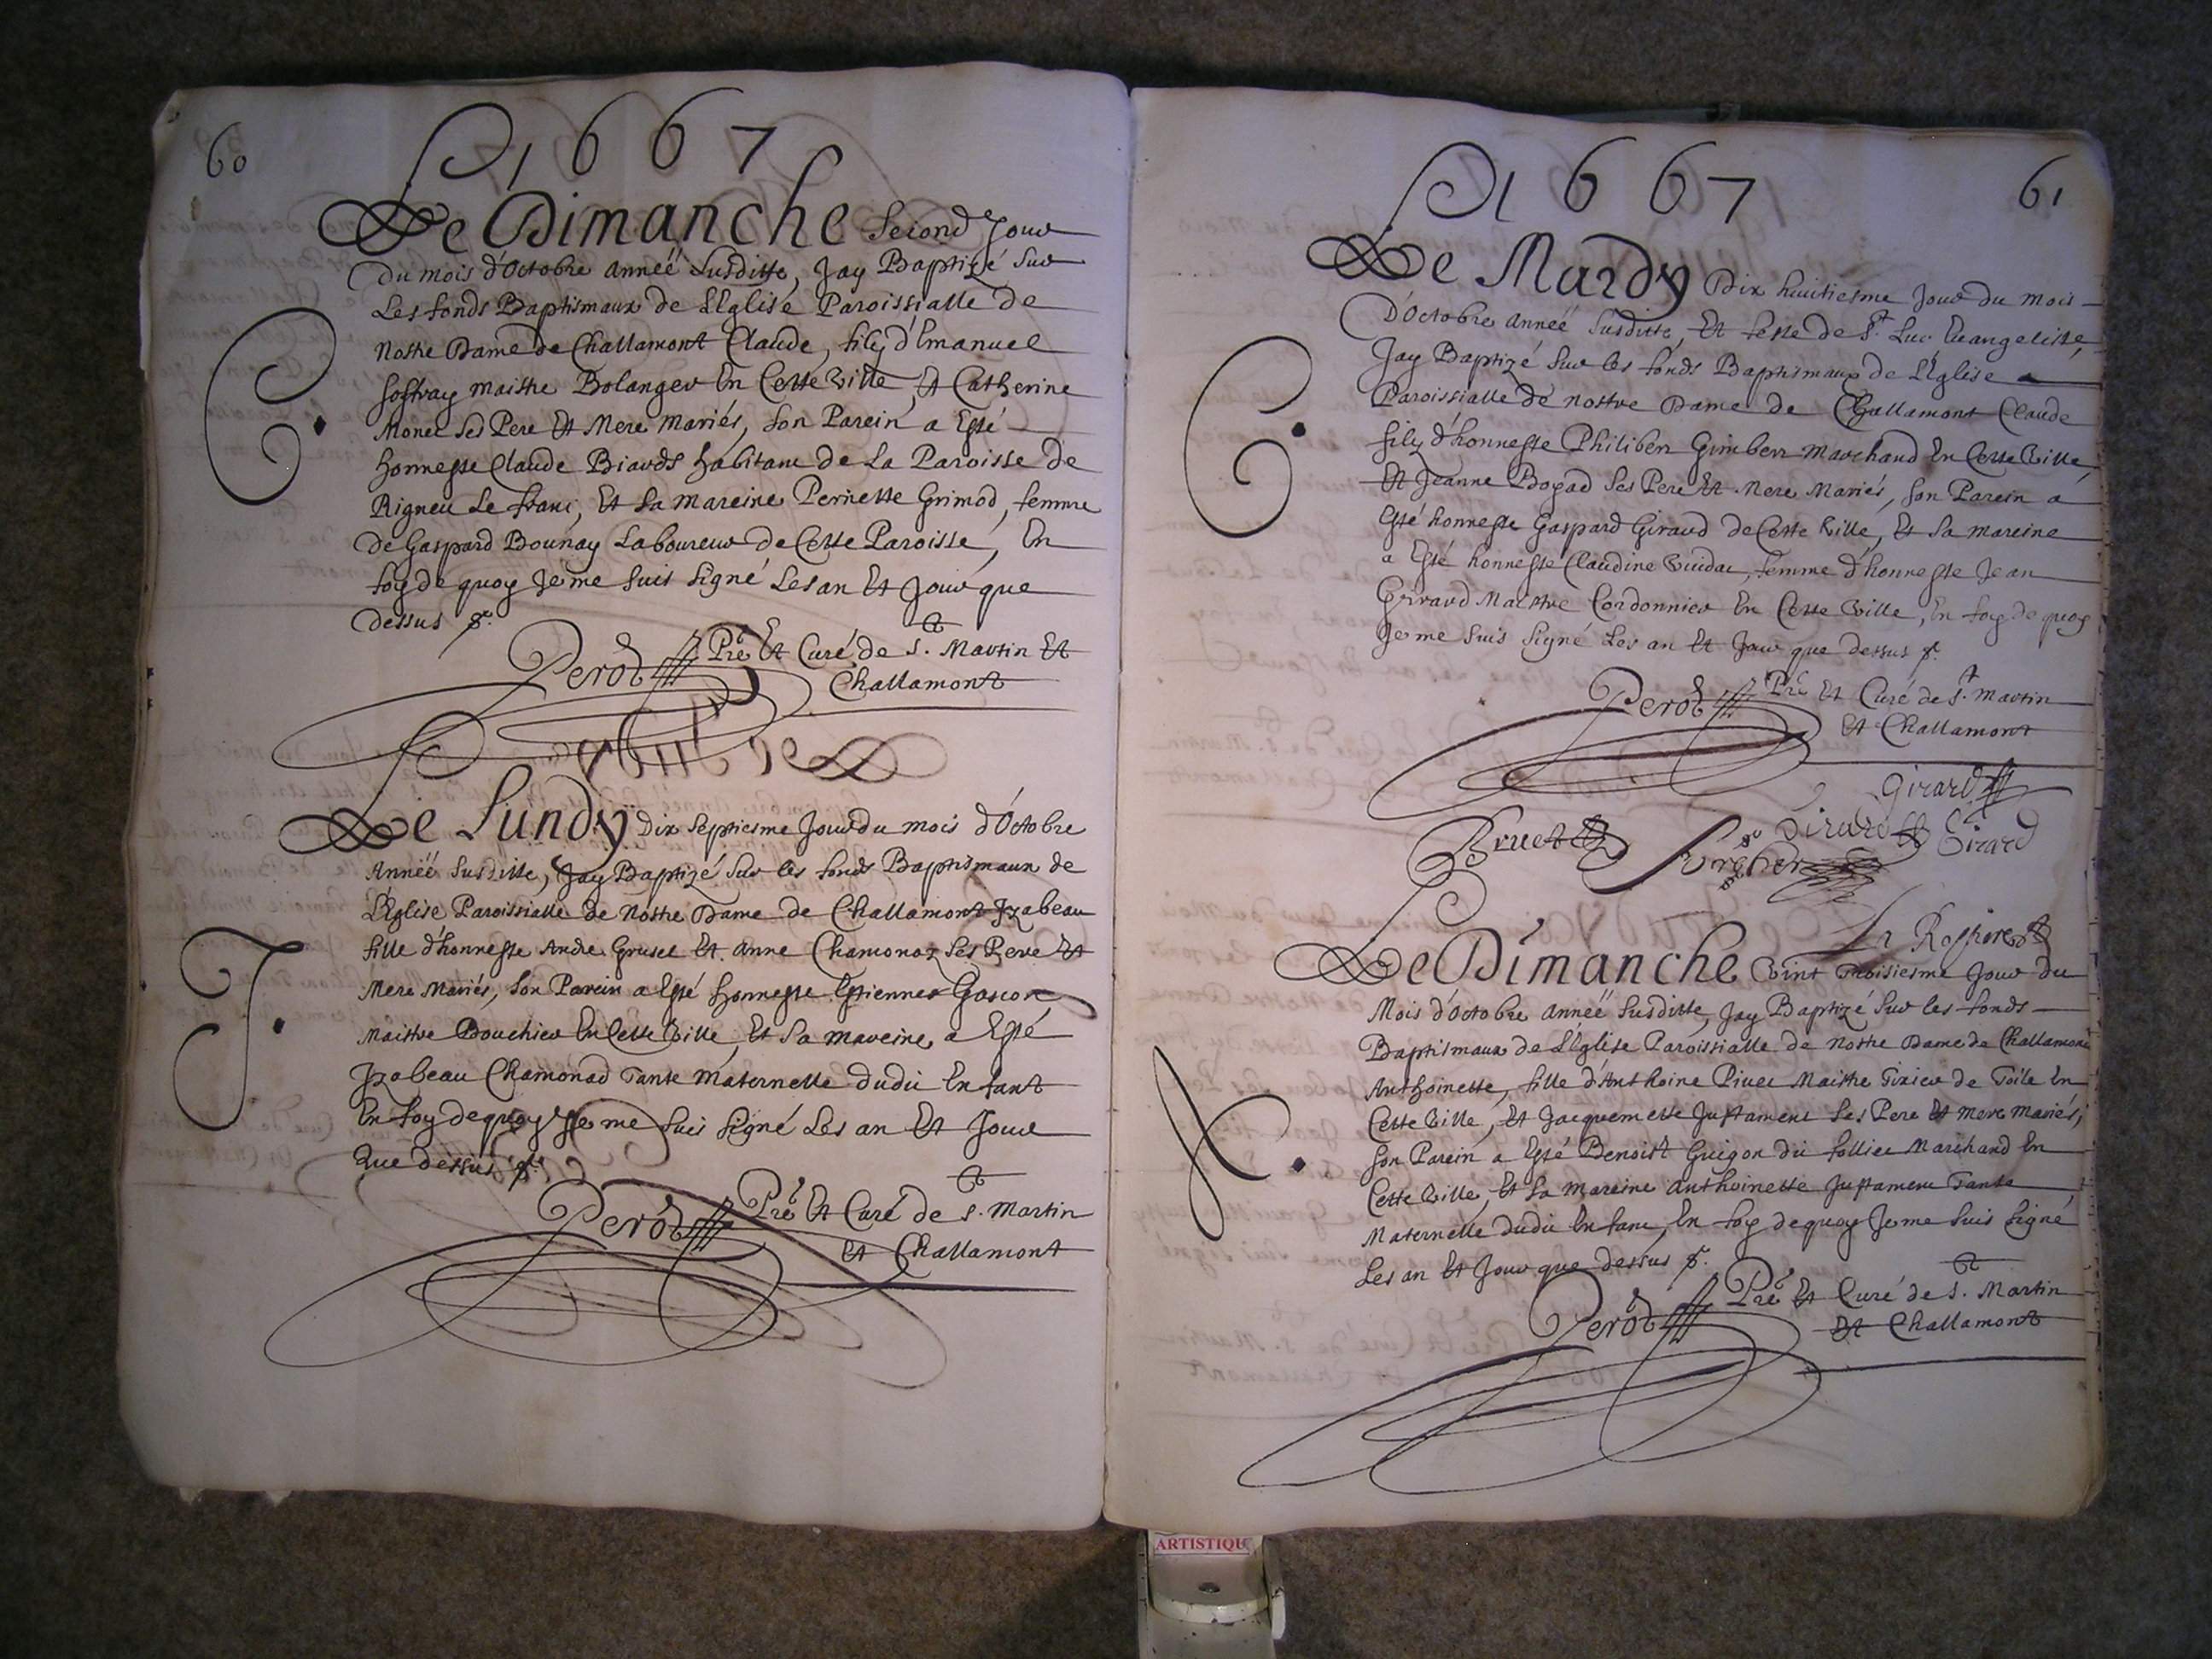 60
1667
Le Dimanche Second Jour
du mois d'Octobre anneë Susditte, Jay Baptizé Sur
Les fonds Baptismaux de LEglise Paroissialle de
Nostre Dame de Challamont Claude, filz d'Emanuel
maistre Bolanger En Cette Ville, Et Catherine
Monet Ses Pere Et Mere Mariés, Son Parein a Esté
honneste Claude Biard habitant de La Paroisse de
Rigneu Le franc, Et Sa Mareine Pernette Grimod, femme
de Gaspard Bounay Laboureur de Cette Paroisse, En
foy de quoy Je me Suis Signé Les an Et Jour que
dessus
Perod Pre Et Curé de St. Martin Et
Challamont
C.
Le Lundy Dix Septiesme Jour du mois d'Octobre
Anneë Susditte, Jay Baptizé Sur les fonds Baptismaux de
LEglise Paroissialle de Nostre Dame de Challamont Izabeau
fille d'honneste Andre Grusel Et Anne Chamonaz Ses Pere Et
Mere Mariés, Son Parein a Esté honneste Estienne Gascon
Maistre Bouchier En Cette Ville, Et Sa mareine a Esté
Izabeau Chamonad Tante Maternelle dudit Enfant
En foy de quoy Je me Suis Signé Les an Et Jour
Que dessus
Perod Pre Et Curé de St. Martin
Et Challamont
J.
1667
61
Le Mardy Dix huitiesme Jour du mois
D'Octobre anneë Susditte, Et feste de St. Luc Evangeliste,
Jay Baptizé Sur les fonds Baptismaux de LEglise
Paroissialle de nostre Dame de Challamont Claude
filz d'honneste Philibert Guibert Marchand En Cette Ville
Et Jeanne Ses Pere Et Mere Mariés, Son Parein a
Esté honneste Gaspard Giraud de Cette Ville, Et Sa Mareine
a Esté honneste Claudine femme d'honneste Jean
Girard Maistre Cordonnier En Cette Ville, En foy de quoy
Je me Suis Signé Les an Et Jour que dessus
Perod Pre Et Curé de St. Martin
Et Challamont
Girard
Bruet Girard Girard
C.
Le Dimanche Vint Troisiesme Jour du
Mois d'Octobre anneë Susditte, Jay Baptizé Sur les fonds
Baptismaux de LEglise Paroissialle de Nostre Dame de Challamont
Anthoinette, fille d'Anthoine Pivet Maistre Tixier de Toile En
Cette Ville, Et Jacquemette Justament Ses Pere Et mere mariés,
Son Parein a Esté Benoist Guigon dit follier Marchand En
Cette Ville, Et Sa Mareine Anthoinette Justament Tante
Maternelle dudit Enfant, En foy de quoy Je me Suis Signé
Les an Et Jour que dessus
Perod Pre Et Curé de St. Martin
Et Challamont
A.
ARTISTIQU